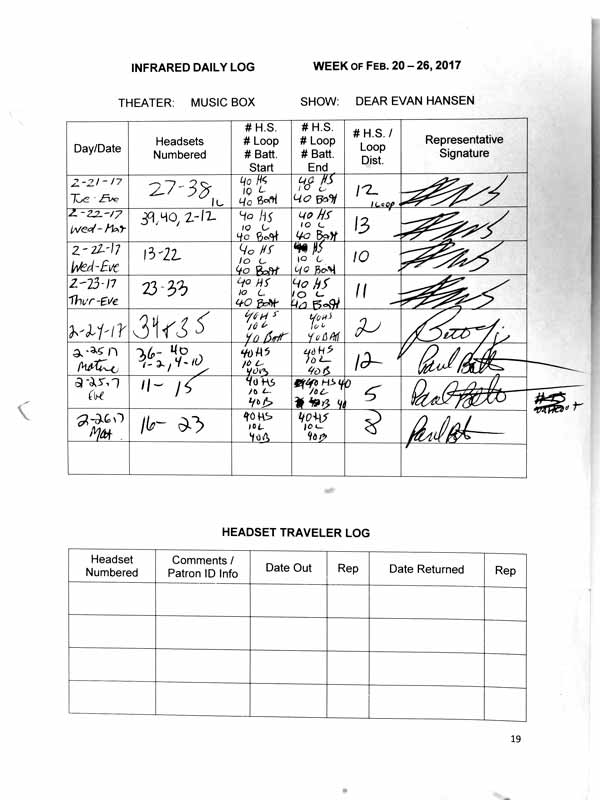 INFRARED DAILY LOG WEEK OF FEB. 20 – 26, 2017
THEATER: MUSIC BOX SHOW: DEAR EVAN HANSEN
Day/Date
Headsets
Numbered
# H.S.
# Loop
# Batt.
Start
# H.S.
# Loop
# Batt.
End
# H.S. /
Loop
Dist.
Representative
Signature
2-21-17
Tue-Eve
27-38
1L
40 HS
10 L
40 Batt
40 HS
10 L
40 Batt
12
1 Loop
2-22-17
Wed-Mat
39,40, 2-12
40 HS
10 L
40 Batt
40 HS
10 L
40 Batt
13
2-22-17
Wed-Eve
13-22
40 HS
10 L
40 Batt
HS
10 L
40 Batt
10
2-23-17
Thur-Eve
23-33
40 HS
10 L
40 Batt
40 HS
10 L
40 Batt
11
2-24-17
34+35
40HS
10L
40 Batt
40HS
10L
40 Batt
2
2-25 17
Matine
36-40
1-2, 4-10
40HS
10L
40B
40HS
10L
40B
12
Paul
2-25,7
Eve
11-15
40HS
10L
40B
40 HS 40
10L
40
5
Paul
2-26,17
Mat
16-23
40HS
10L
40B
40HS
10L
40B
8
Paul
HEADSET TRAVELER LOG
Headset
Numbered
Comments /
Patron ID Info
Date Out
Rep
Date Returned
Rep
19